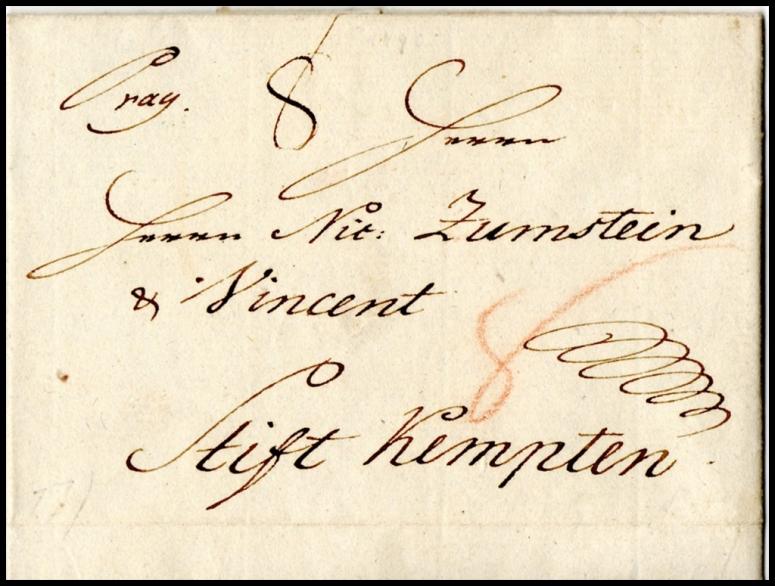 Prag. 8 Herrn
Herrn Nic: Zumstein
& Vincent
8
Stift Kempten.